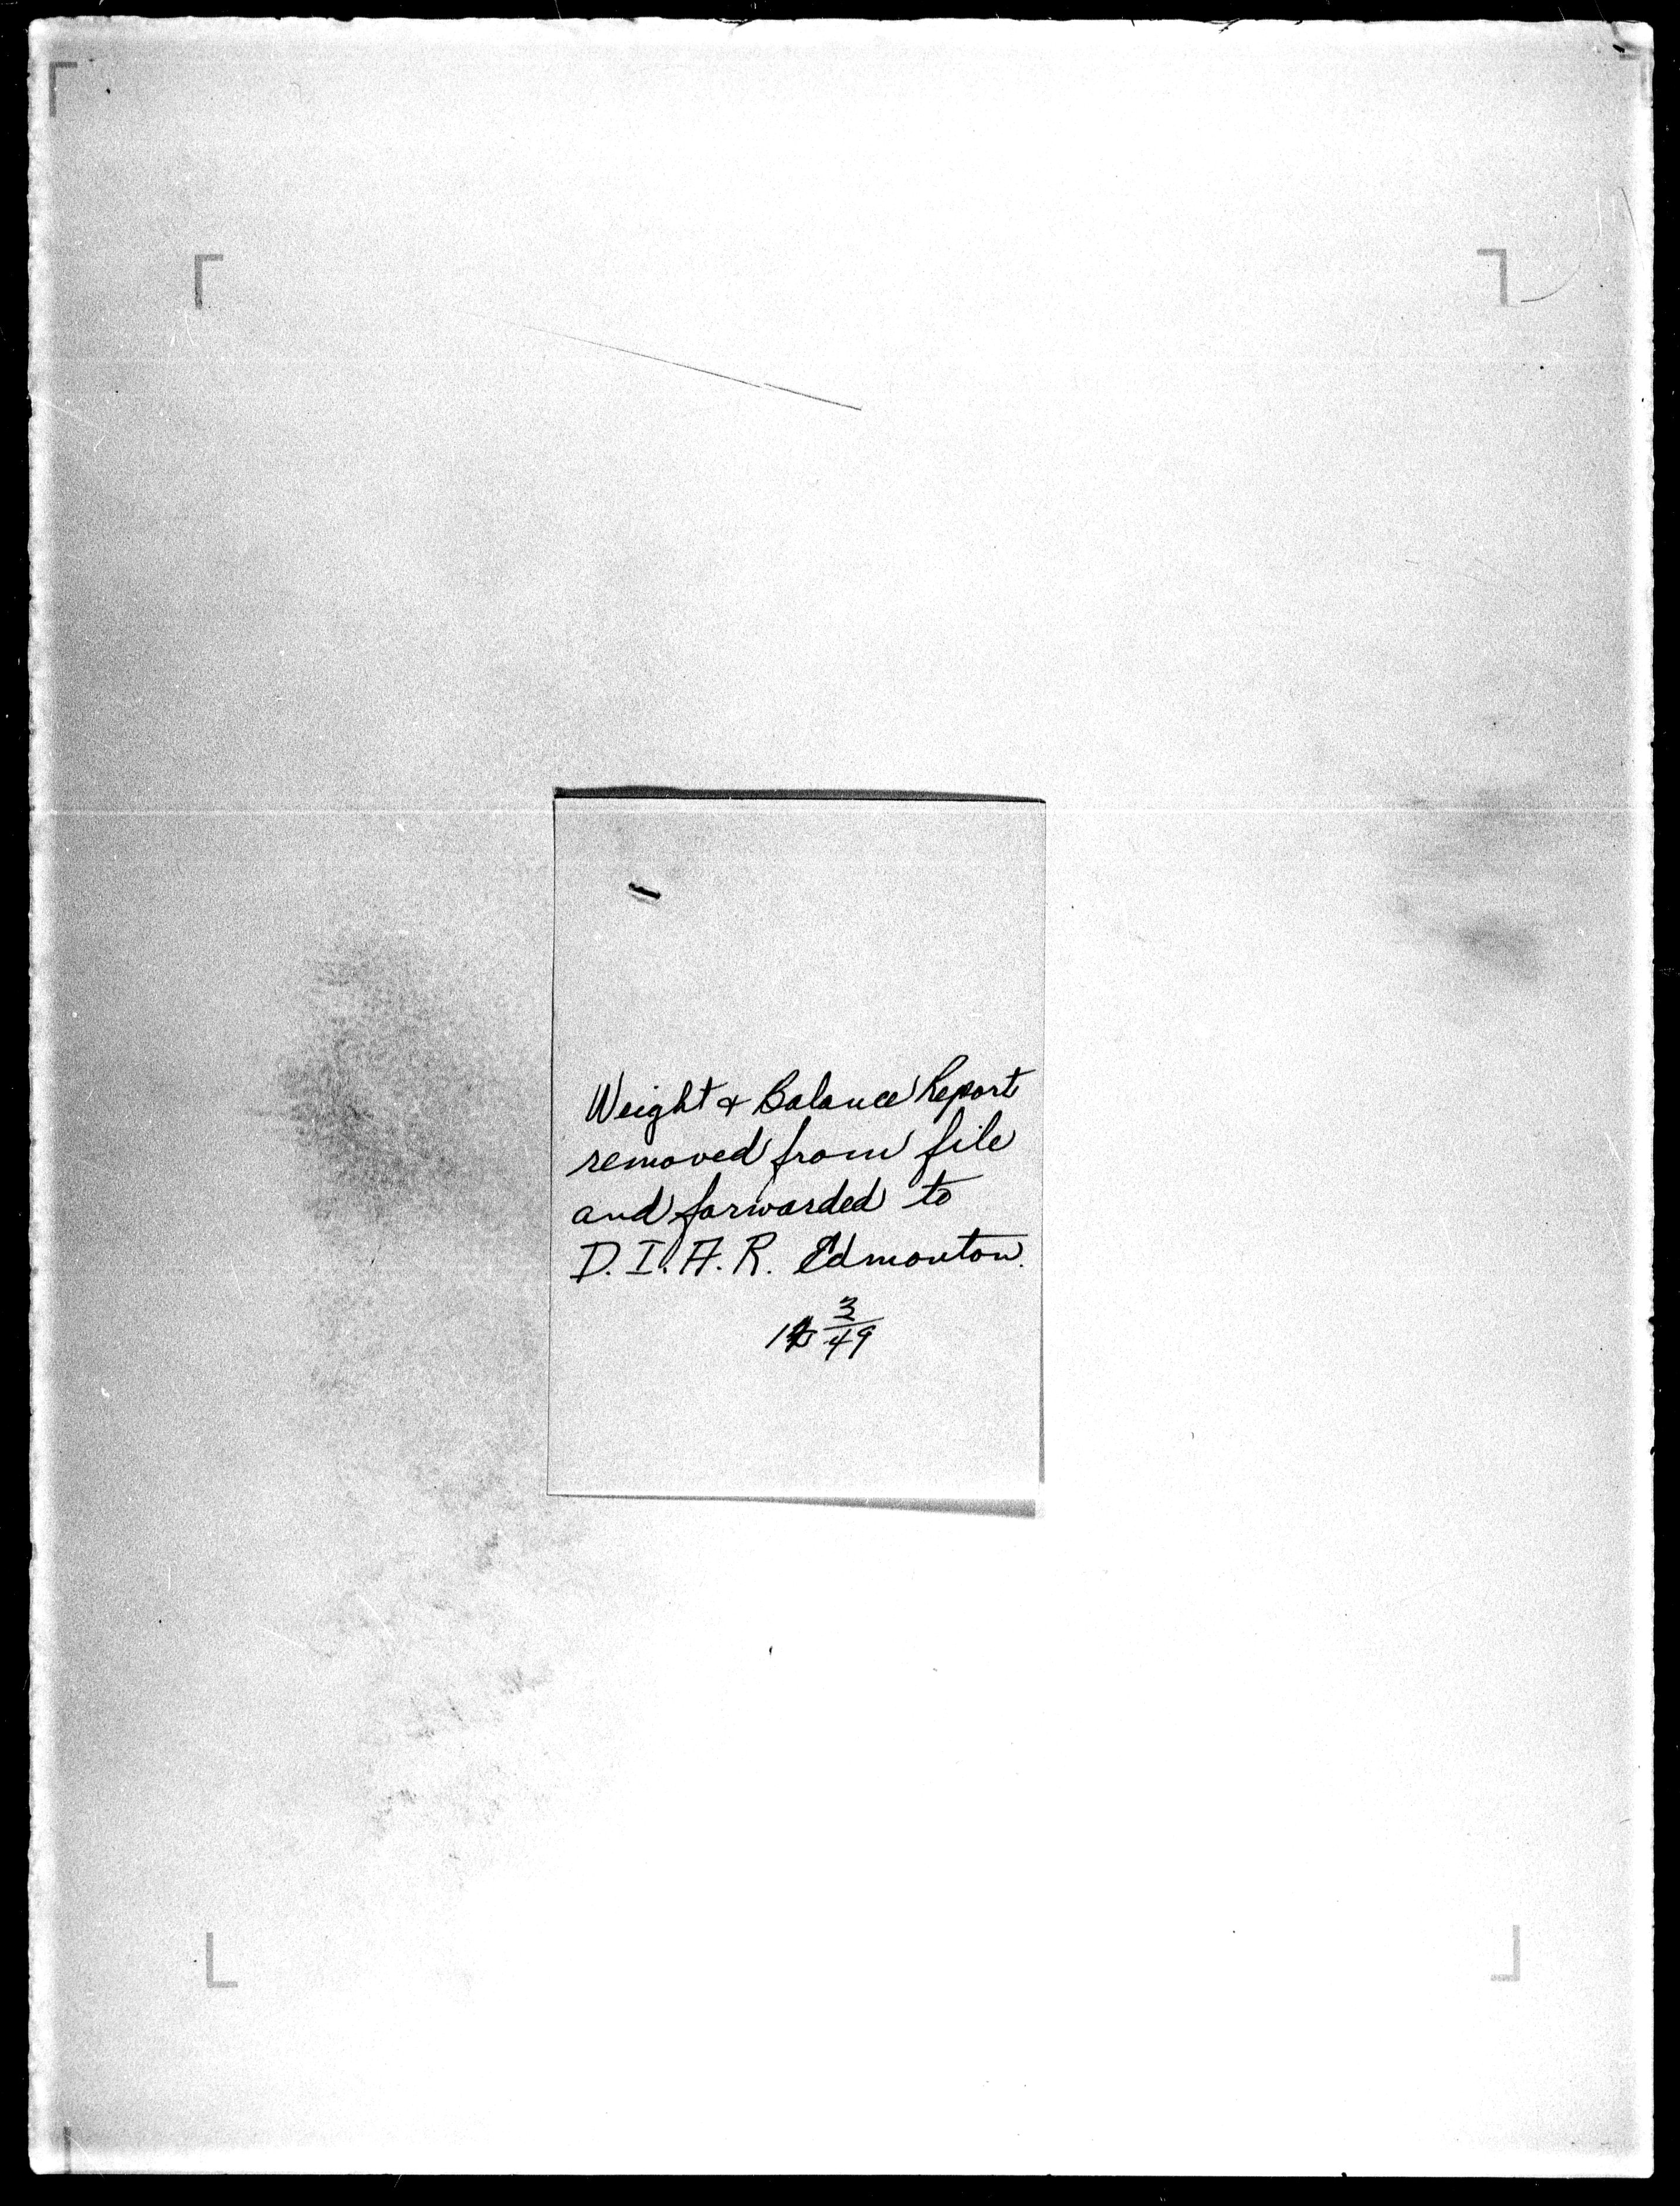 Weight & Balance Report
removed from file
and forwarded to
D.I.A.R. Edmonton.
3/49